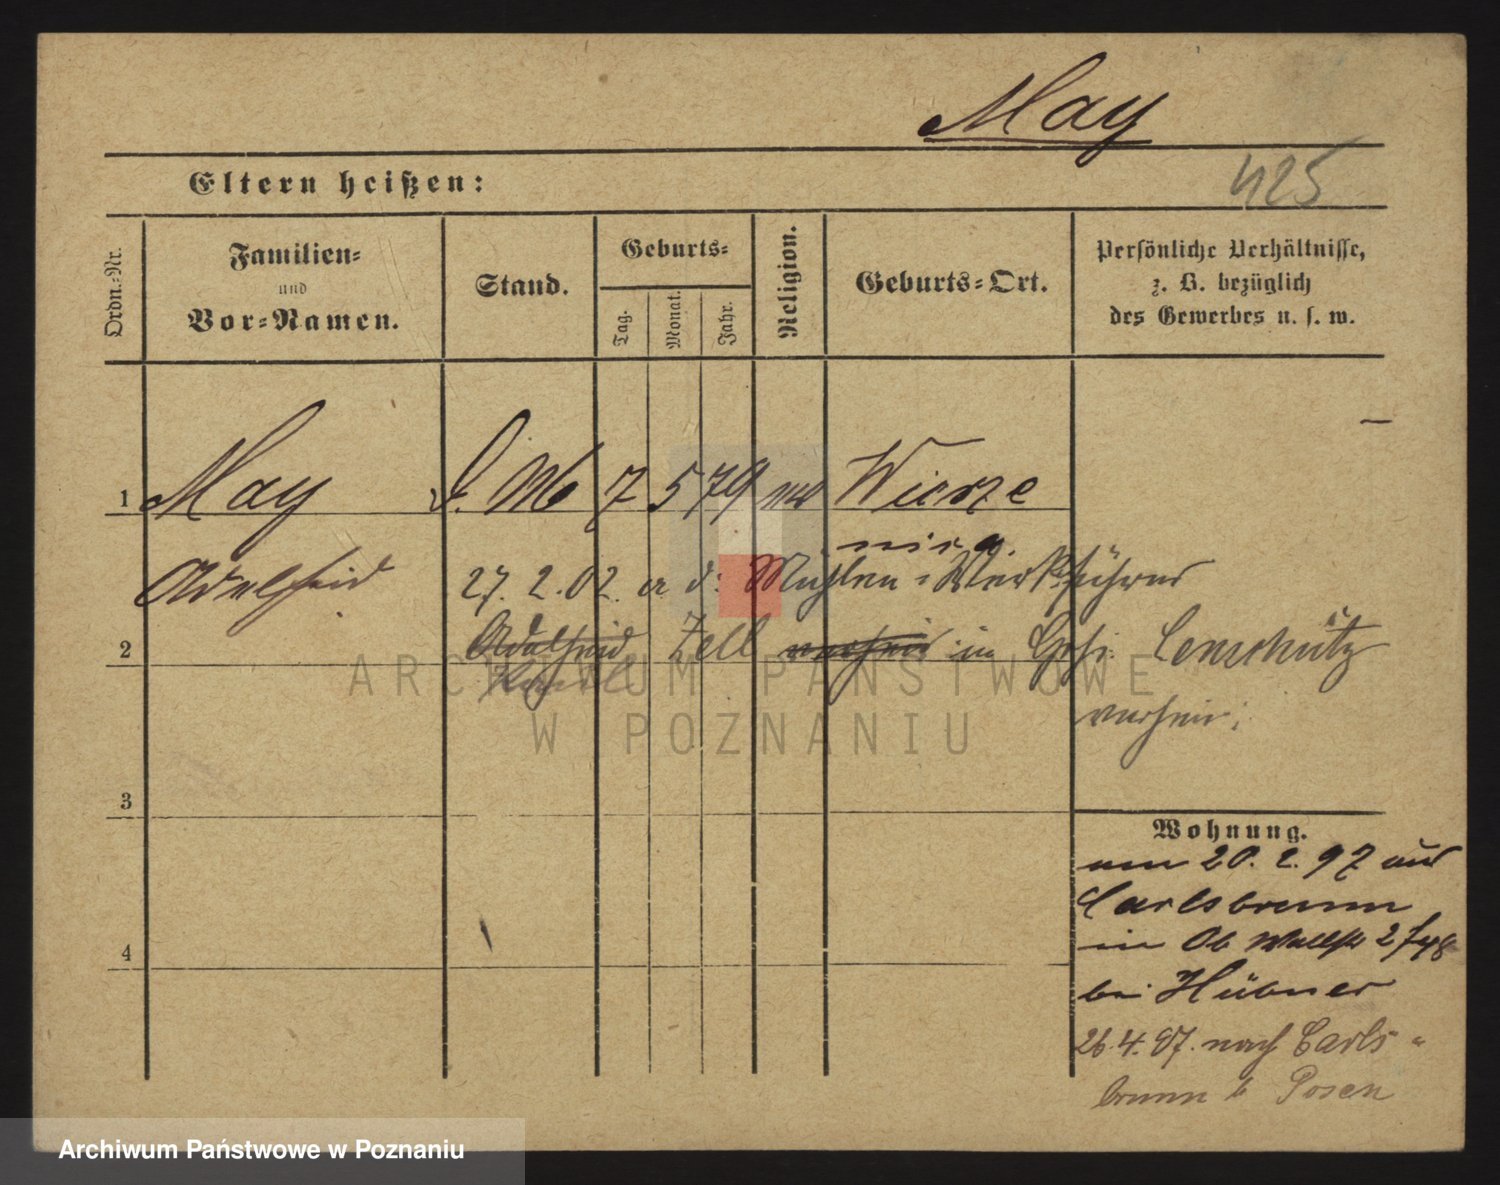 May
Eltern heißen:
425
Ordn.-Nr.
Familien-
und
Vor-Namen.
Stand.
Geburts-
Tag.
Monat.
Jahr.
Religion.
Geburts-Ort.
Persönliche Verhältnisse,
z. B. bezüglich
des Gewerbes u. s. w.
1 May D. M 7 5 79 Wierze
nica
Adelheid 27. 2. 02. a d: Mühlen-Werkführer
2 Adelheid Zell in
3
Wohnung.
von 20. 2. 97 aus
Carlsbrunn
in Ob Wallstr 2
bei Hübner
4
26. 4. 97. nach Carls-
brunn b Posen
ARCHIWUM PAŃSTWOWE
W POZNANIU
Archiwum Państwowe w Poznaniu